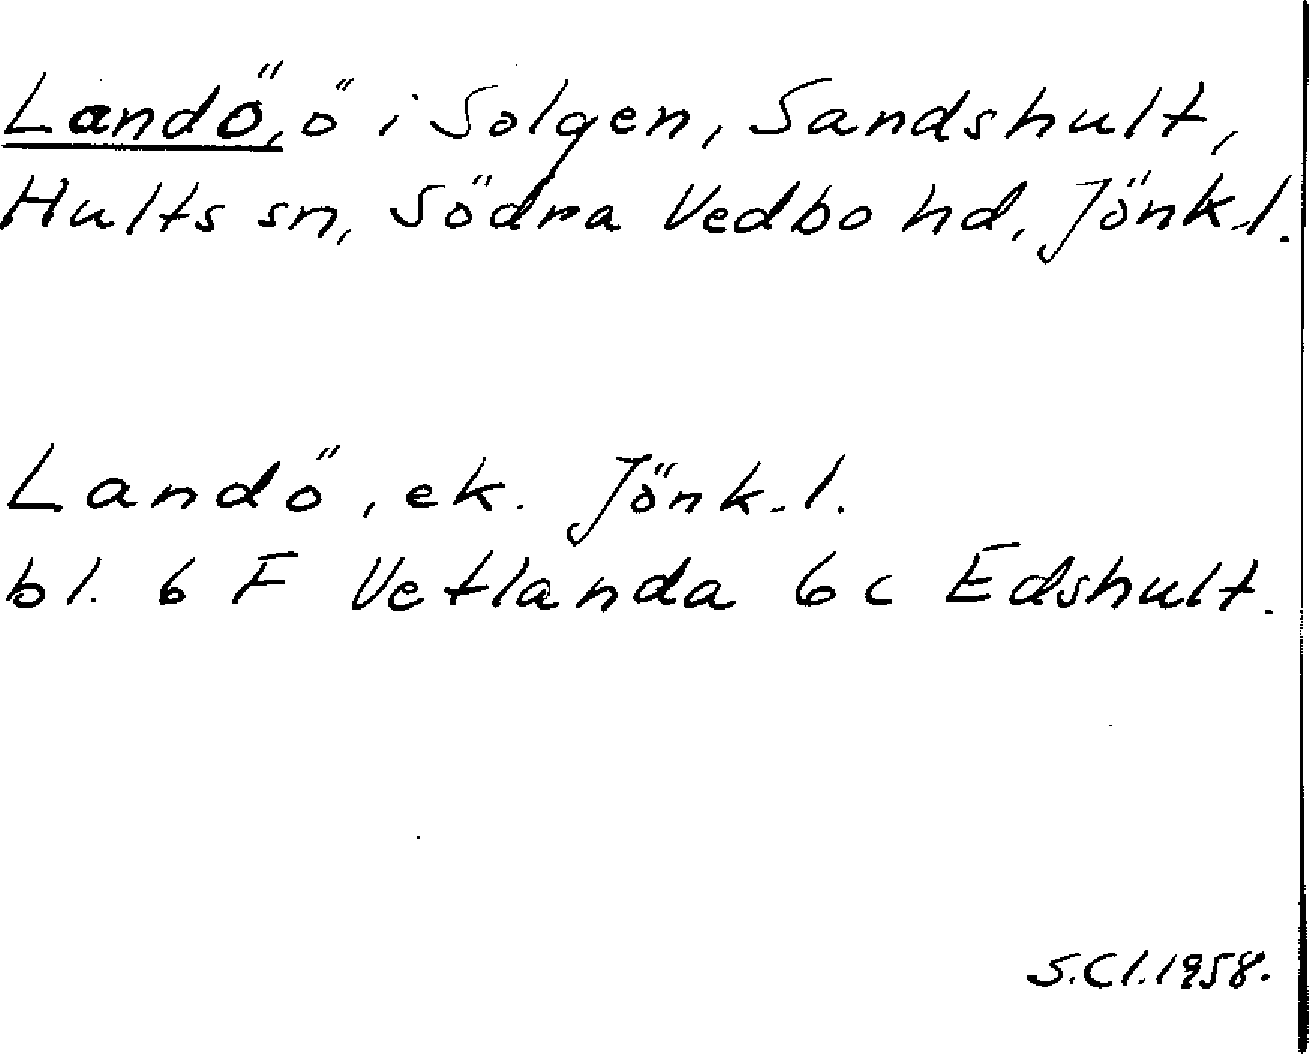 Landö, ö i Solgen, Sandshult,
Hults sn, Södra Vedbo hd, Jönk.l.
Landö, ek. Jönk.l.
bl. 6 F Vetlanda 6 c Edshult.
S.Cl.1958.